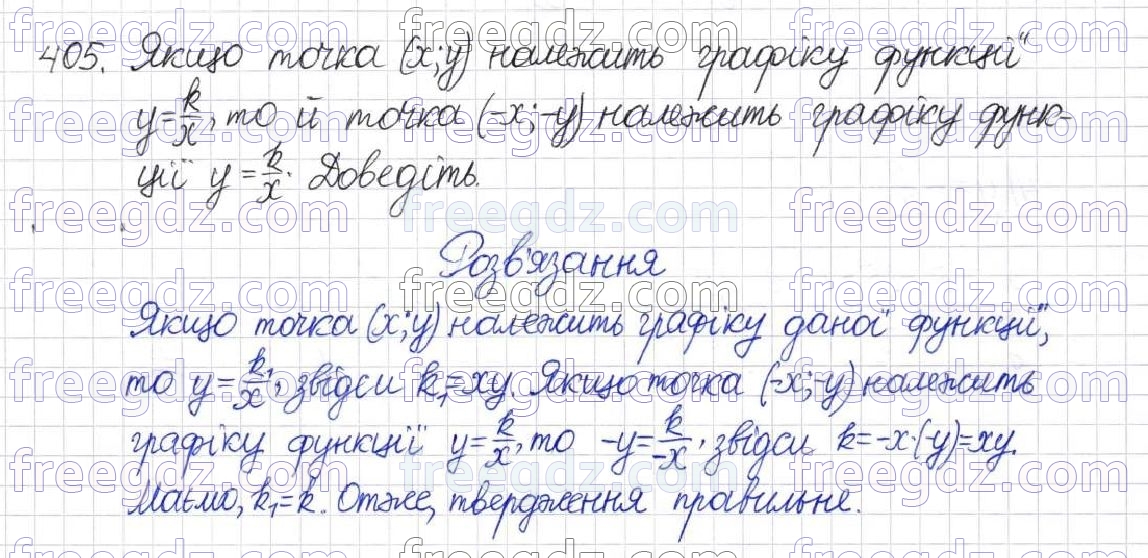 405. Якщо точка (x;y) належить графіку функції
y=k/x, то й точка (-x;-y) належить графіку функ-
ції y=k/x. Доведіть.
Розв'язання
Якщо точка (x;y) належить графіку даної функції,
то y=k₁/x, звідси k₁=xy. Якщо точка (-x;-y) належить
графіку функції y=k/x, то -y=k/-x, звідси k=-x·(-y)=xy.
Маємо, k₁=k. Отже, твердження правильне.
freegdz.com